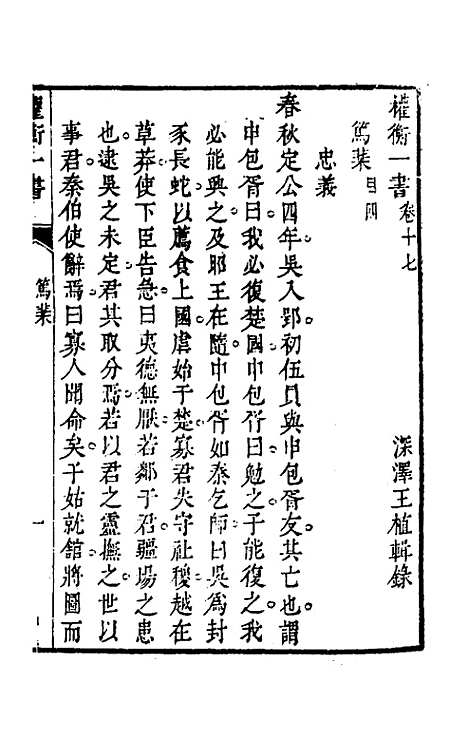 權衡一書卷十七
深澤王植輯錄
篤棐目四
忠義
春秋定公四年吳入郢初伍員與申包胥友其亡也謂
申包胥曰我必復楚國申包胥曰勉之子能復之我
必能興之及昭王在隨申包胥如秦乞師曰吳為封
豕長蛇以薦食上國虐始于楚寡君失守社稷越在
草莽使下臣告急曰夷德無厭若鄰于君疆場之患
也逮吳之未定君其取分焉若以君之靈撫之世以
事君秦伯使辭焉曰寡人聞命矣子姑就舘將圖而
權衡一書
篤棐
一